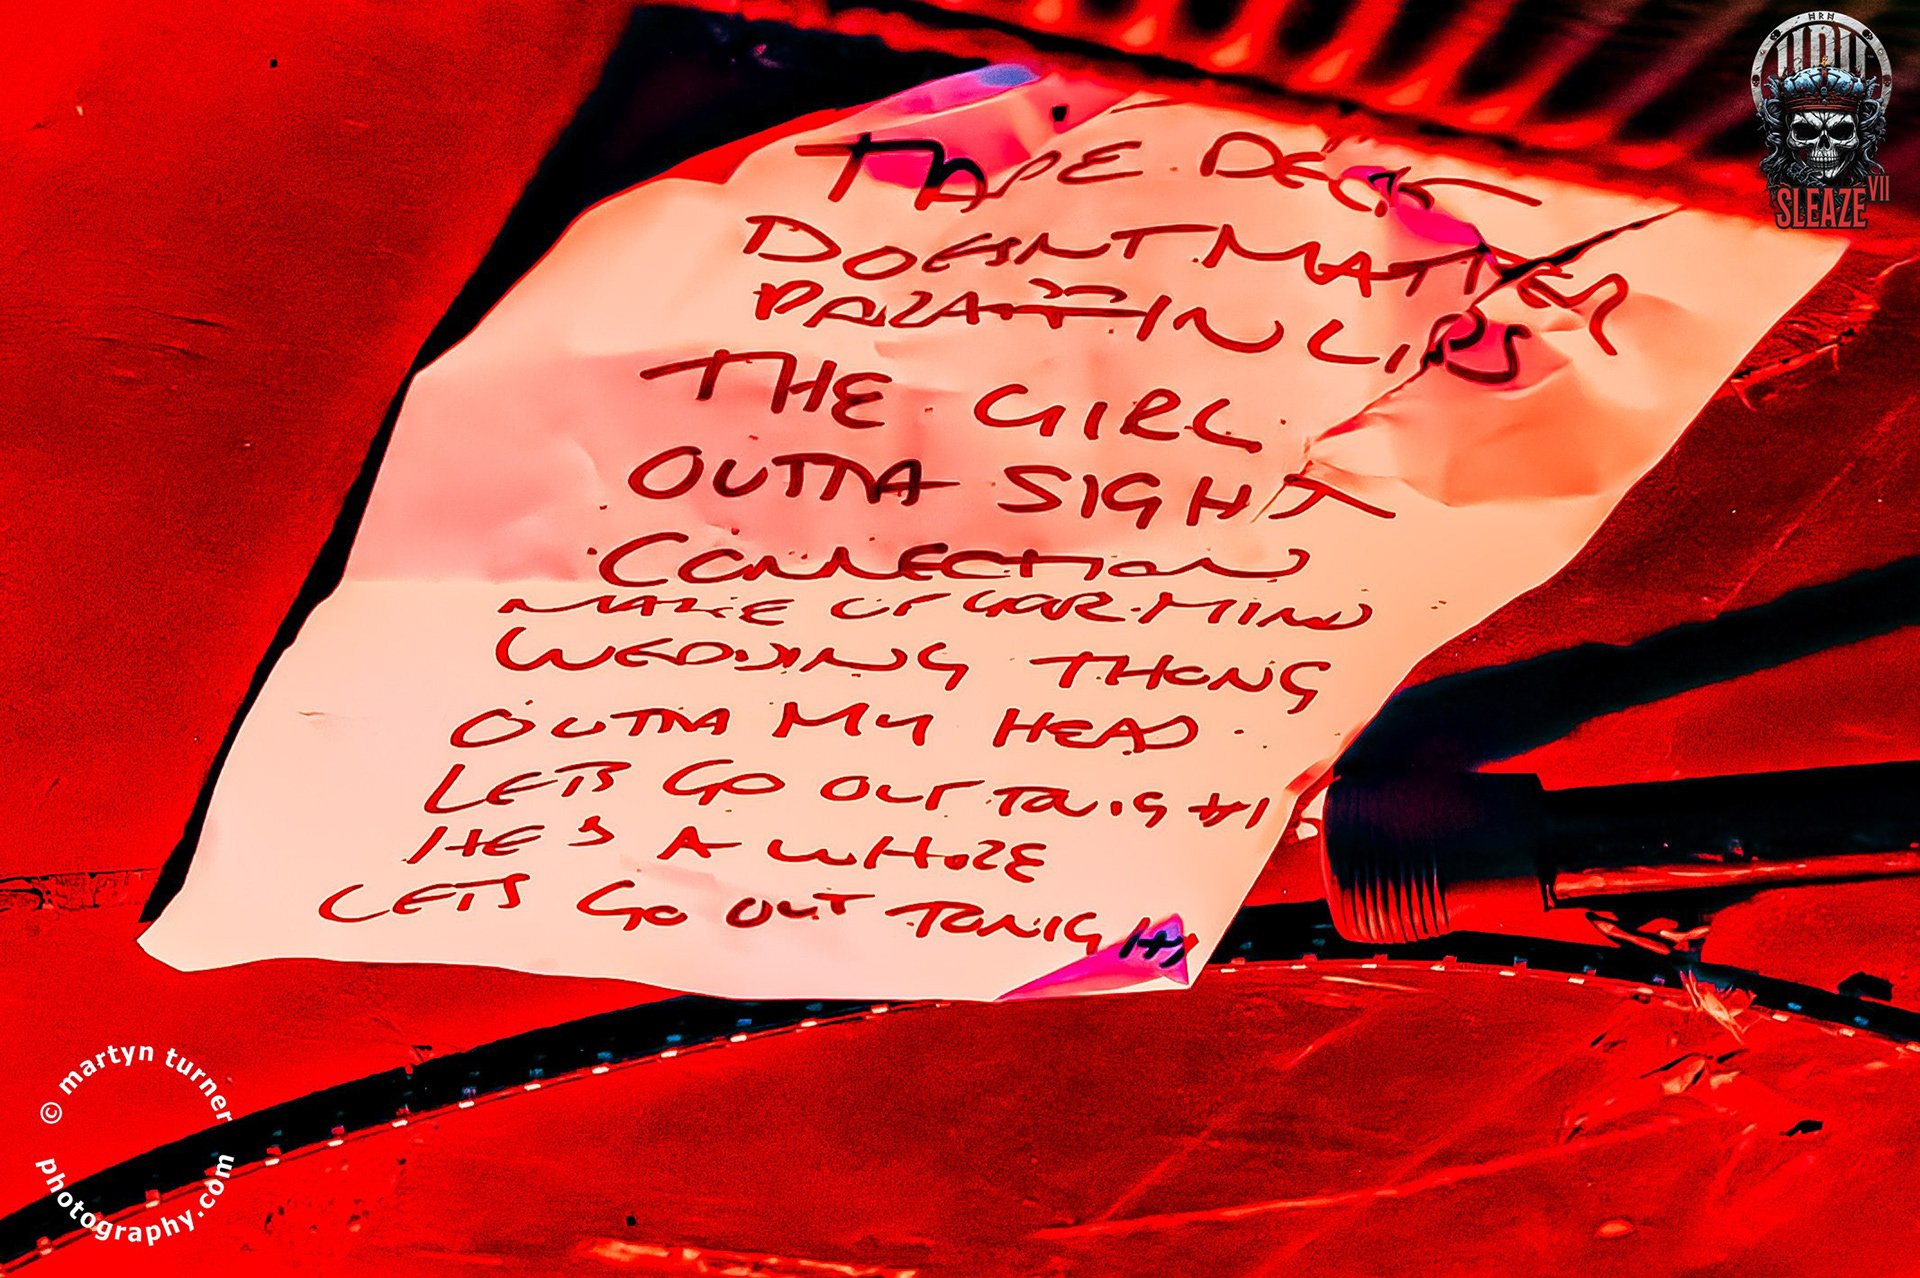 TAPE DECK
DOESNT MATTER
PARAFFIN LIPS
THE GIRL
OUTTA SIGHT
CONNECTION
MAKE UP YOUR MIND
WEDDING THONG
OUTTA MY HEAD
LETS GO OUT TONIGHT
HE'S A WHORE
LETS GO OUT TONIGHT
HRH
HRH
SLEAZE VII
© martyn turner
photography.com